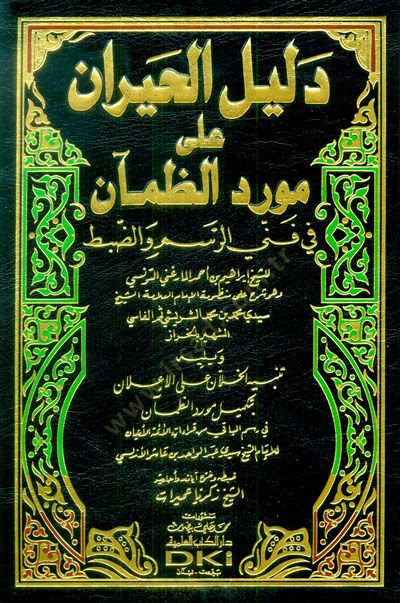 دليل الحيران
على
مورد الظمآن
في فني الرسم والضبط
للشيخ إبراهيم بن أحمد المارغني التونسي
وهو شرح على منظومة الإمام العلامة الشيخ
سيدي محمد بن محمد الشريشي ثم الفاسي
الشهير بالخراز
ويليه
تنبيه الخلان على الإعلان
بتكميل مورد الظمآن
في رسم الباقي من قراءات الأئمة الأعيان
للإمام الشيخ سيدي عبد الواحد بن عاشر الأندلسي
ضبطه وخرج آياته وأحاديثه
الشيخ زكريا عميرات
منشورات
محمد علي بيضون
دار الكتب العلمية
DKi
بيروت - لبنان